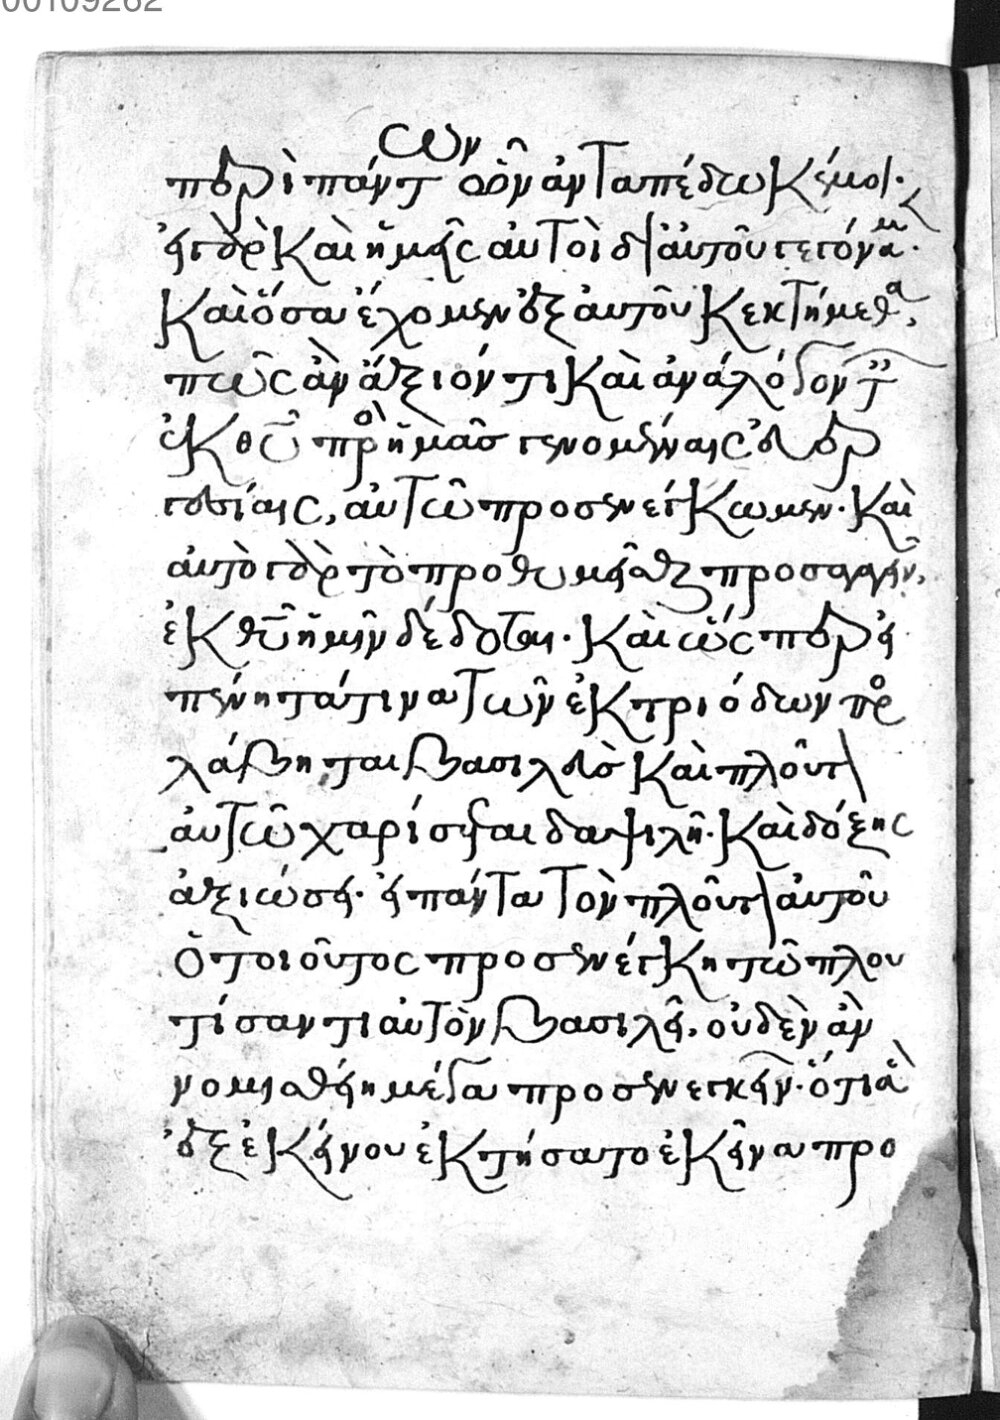 00109262
περὶ πάντων ὧν ἀνταπέδωκέ μοι.
εἰ γὰρ καὶ ἡμεῖς αὐτοὶ δι αὐτοῦ γεγόναμεν.
καὶ ὅσα ἔχομεν ἐξ αὐτοῦ κεκτήμεθα,
πῶς ἂν ἄξιόν τι καὶ ἀνάλογον ταῖς
ἐκ θεοῦ πρὸς ἡμᾶς γενομέναις εὐερ
γεσίαις, αὐτῶ προσενέγκωμεν. καὶ
αὐτὸ γὰρ τὸ προθυμεῖσθαι προσαγαγεῖν,
ἐκ θεοῦ ἡμῖν δέδοται. καὶ ὥσπερ εἰ
πένητά τινα τῶν ἐκ τριόδων προσ
λάβηται βασιλεὺς καὶ πλοῦτον
αὐτῶ χαρίσηται δαψιλῆ. καὶ δόξης
ἀξιώσει. εἰ πάντα τὸν πλοῦτον αὐτοῦ
ὁ τοιοῦτος προσενέγκη τῶ πλου
τίσαντι αὐτὸν βασιλεῖ, οὐδὲν ἂν
νομισθείη μέγα προσενεγκεῖν. ὅτι ἃ
ἐξ ἐκείνου ἐκτήσατο ἐκεῖνα προ